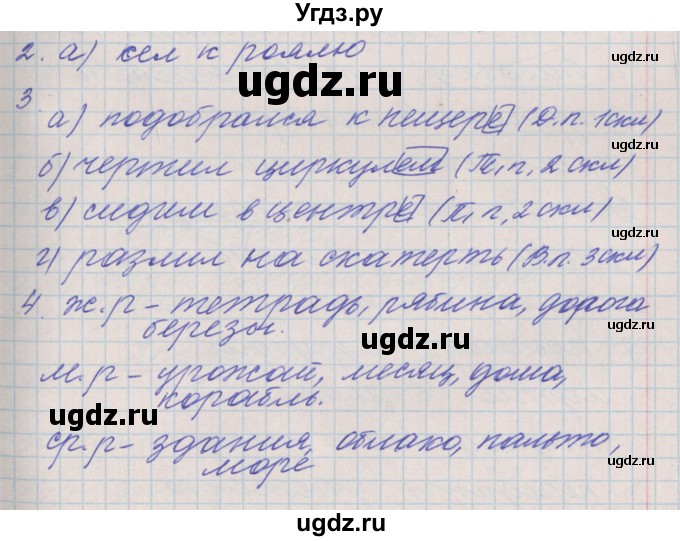 Угдз.ру
2. а) сел к роялю
ugdz.ru
3
а) подобрался к пещере (Д.п. 1скл)
ugdz.ru
б) чертил циркулем (Т.п, 2 скл)
в) сидим в центре (П.п, 2 скл)
ugdz.ru
г) разлил на скатерть (В.п. 3скл)
4. ж.р – тетрадь, рябина, дорога
березы.
м.р – урожай, месяц, дома,
корабль.
ugdz.ru
ср.р – здания, облако, пальто,
море
ugdz.ru